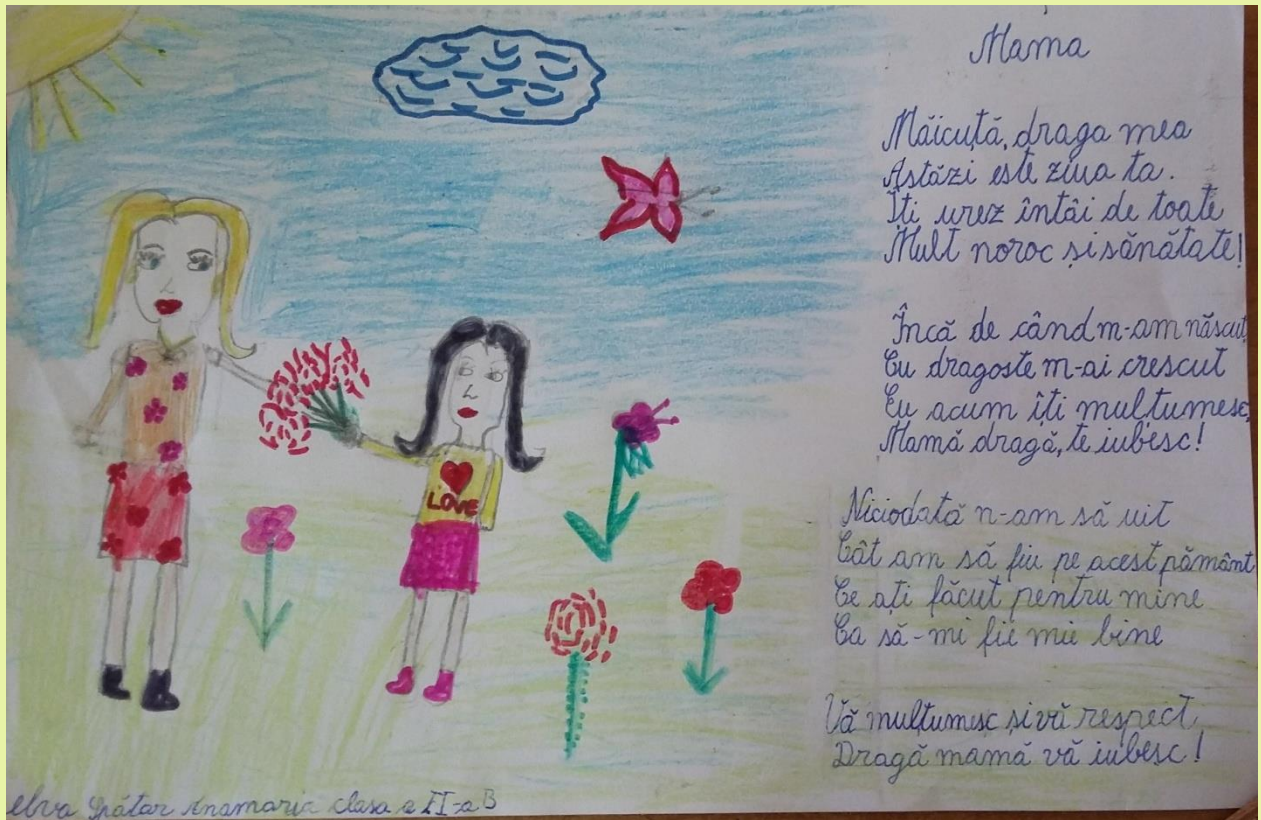 Mama
Măicuță, draga mea
Astăzi este ziua ta.
Îți urez întâi de toate
Mult noroc și sănătate!
Încă de când m-am născut,
Cu dragoste m-ai crescut
Eu acum îți mulțumesc,
Mamă dragă, te iubesc!
Niciodată n-am să uit
Cât am să fiu pe acest pământ
Ce ați făcut pentru mine
Ca să-mi fie mie bine
Vă mulțumesc și vă respect,
Dragă mamă vă iubesc!
LOVE
elva Spătar Anamaria clasa a II-a B